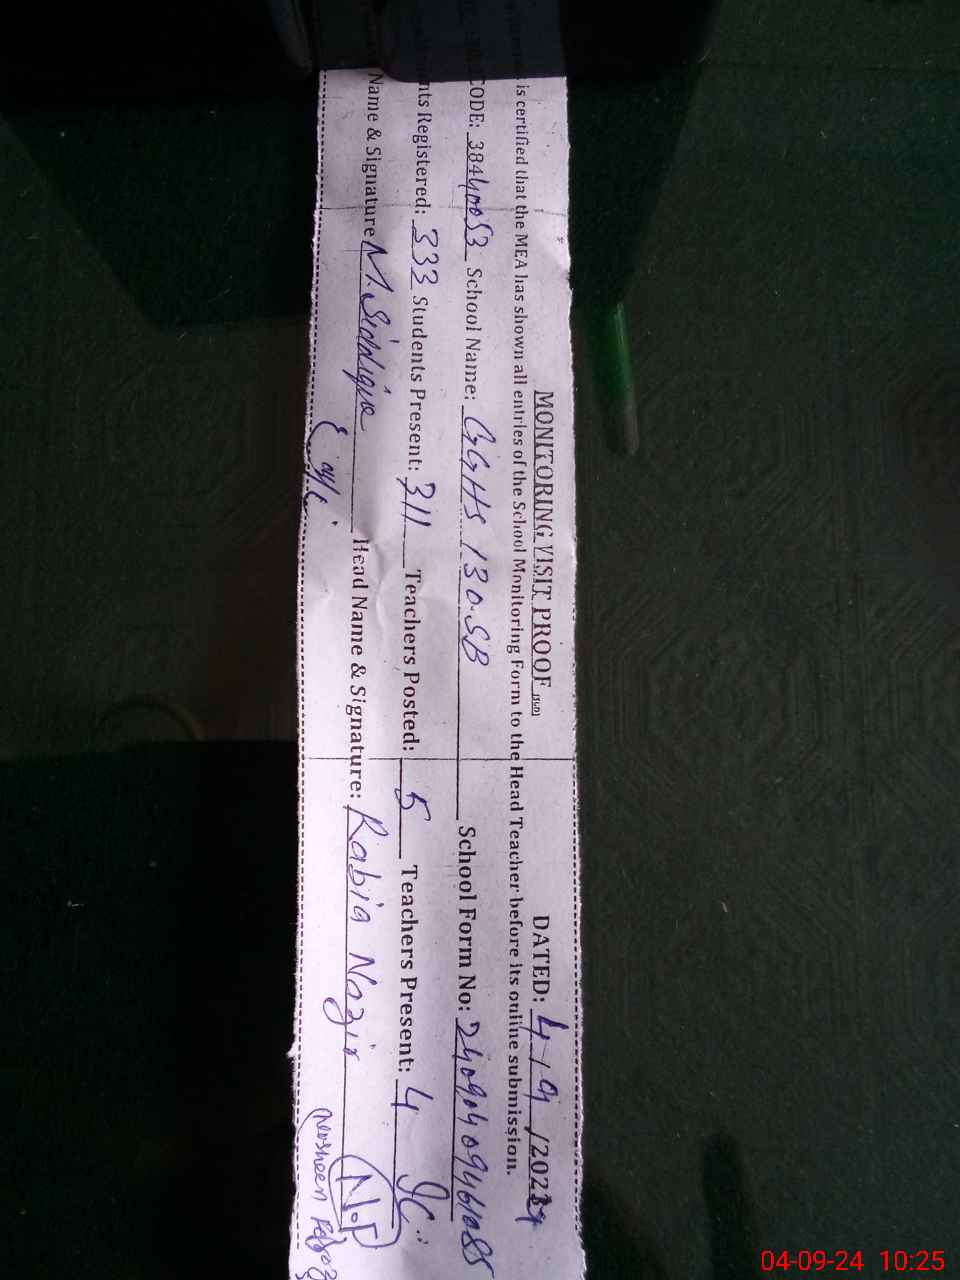 MONITORING VISIT PROOF DATED: 4-9/2024
is certified that the MEA has shown all entries of the School Monitoring Form to the Head Teacher before its online submission.
CODE: 38440053 School Name: GGHS 130.SB School Form No:
nts Registered: 333 Students Present: 311 Teachers Posted: 5 Teachers Present: 4
Name & Signature M. Siddique Head Name & Signature: Rabia Nazir
04-09-24 10:25